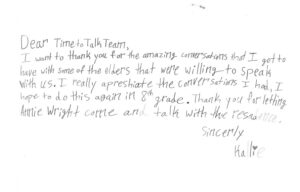 Dear Time to Talk Team,
I want to thank you for the amazing conversations that I got to
have with some of the elders that were willing to speak
with us. I really apreshiate the conversations I had, I
hope to do this again in 8th grade. Thank you for letting
Annie Wright come and talk with the
Sincerly
Kallie